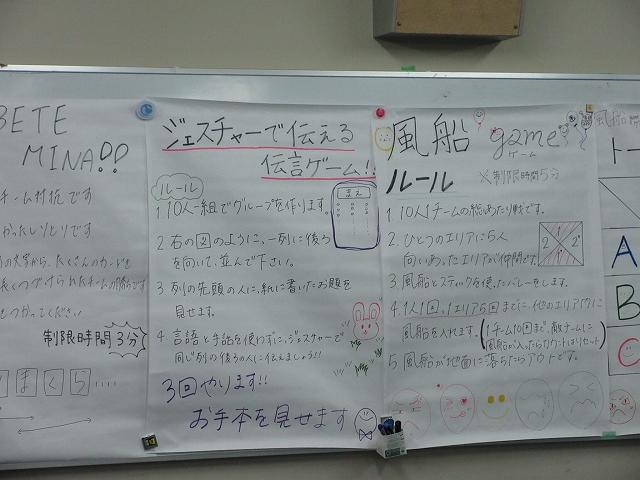 BETE
MINA!!
チーム対抗です
かったしりとりです
の文字から、たくさんのカードを
長くつづけられたチームの勝ちです
をつかってください
制限時間3分
まくら....
ジェスチャーで伝える
伝言ゲーム!!
ルール
1 10人一組でグループを作ります。
まえ
2 右の図のように、一列に後ろ
を向いて、並んで下さい。
3 列の先頭の人に、紙に書いたお題を
見せます。
4 言語と手話を使わずに、ジェスチャーで
同じ列の後ろの人に伝えましょう!!
3回やります!!
お手本を見せます
風船 game
ゲーム
ルール ※制限時間5分
1 10人1チームの総あたり戦です。
2. ひとつのエリアに5人
向いあったエリアが仲間です。
1 2 1 2
3 風船とスティックを使ったバレーをします。
4. 1人1回、1エリア5回までに、他のエリアに
風船を入れます。(1チーム10回まで、敵チームに
風船が入ったらカウントはリセット)
5 風船が地面に落ちたらアウトです。
風船
トー
A
B
C